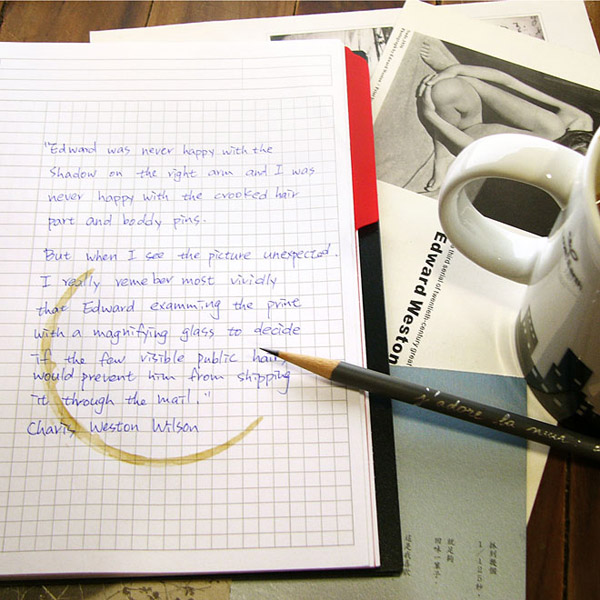 "Edward was never happy with the
shadow on the right arm and I was
never happy with the crooked hair
part and boddy pins.
But when I see the picture unexpected.
I really remeber most vividly
that Edward examming the print
with a magnifying glass to decide
if the few visible public hairs
would prevent him from shipping
it through the mail."
Charis Weston Wilson
third serial of twentieth-century great
Edward Weston
j'adore la
這是我喜歡
回味一輩子，
就足夠
1/125秒，